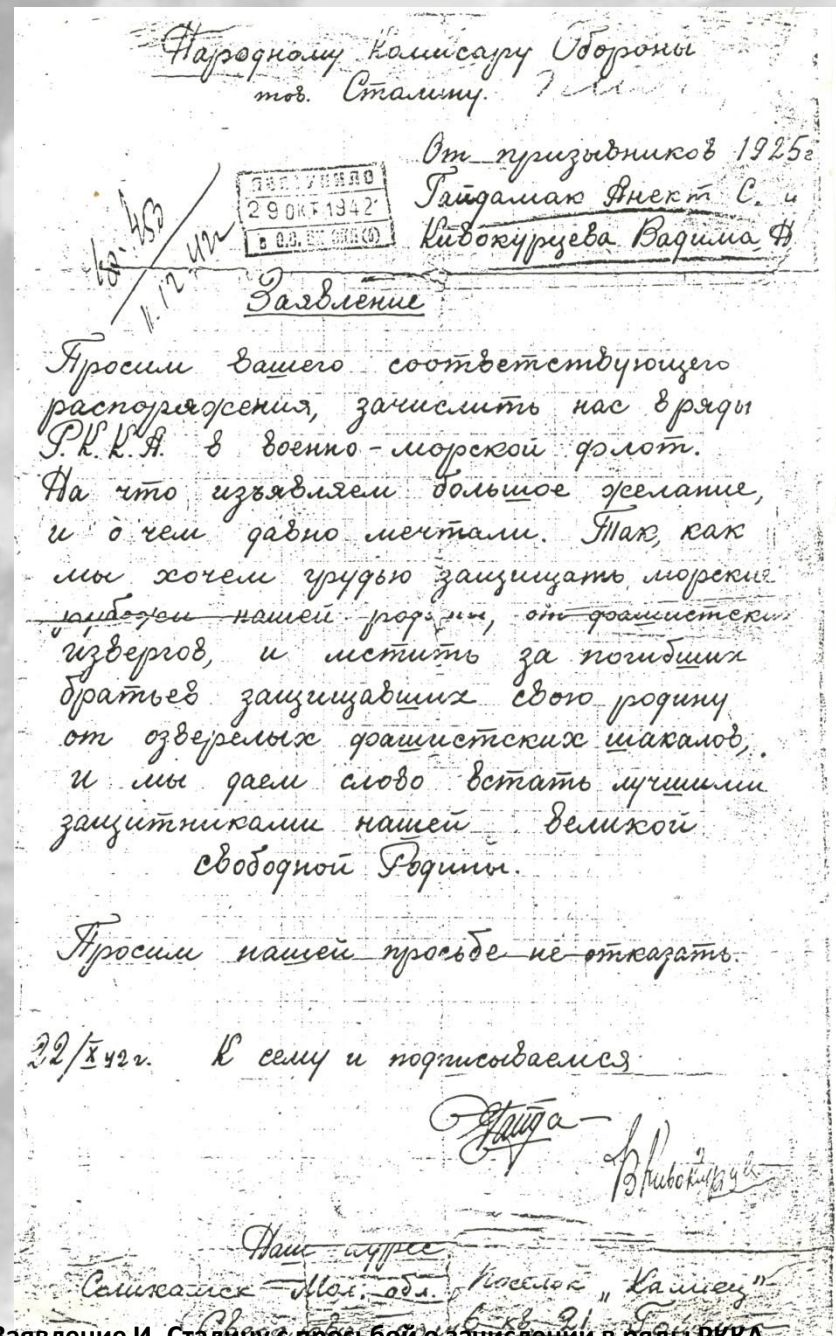 Народному Комисару Обороны
тов. Сталину.
От призывников 1925г
Гайдамак Анект С. и
Кивокурцева Вадима Н
ПОСТУПИЛО
29 ОКТ 1942
11.12.42г
Заявление
Просим вашего соответствующего
распоряжения, зачислить нас в ряды
Р.К.К.А. в военно-морской флот.
На что изъявляем большое желание,
и о чем давно мечтали. Так, как
мы хочем грудью защищать морские
рубежи нашей родины, от фашистских
извергов, и мстить за погибших
братьев защищавших свою родину
от озверелых фашистских шакалов,
и мы даем слово встать лучшими
защитниками нашей великой
свободной Родины.
Просим нашей просьбе не отказать.
22/X 42г. К сему и подписываемся
Гайда
В Кивокурце
Наш адрес
Соликамск Мол. обл. Поселок "Калиец"
кв. 21
Заявление И. Сталину с просьбой о зачислении в ряды РККА